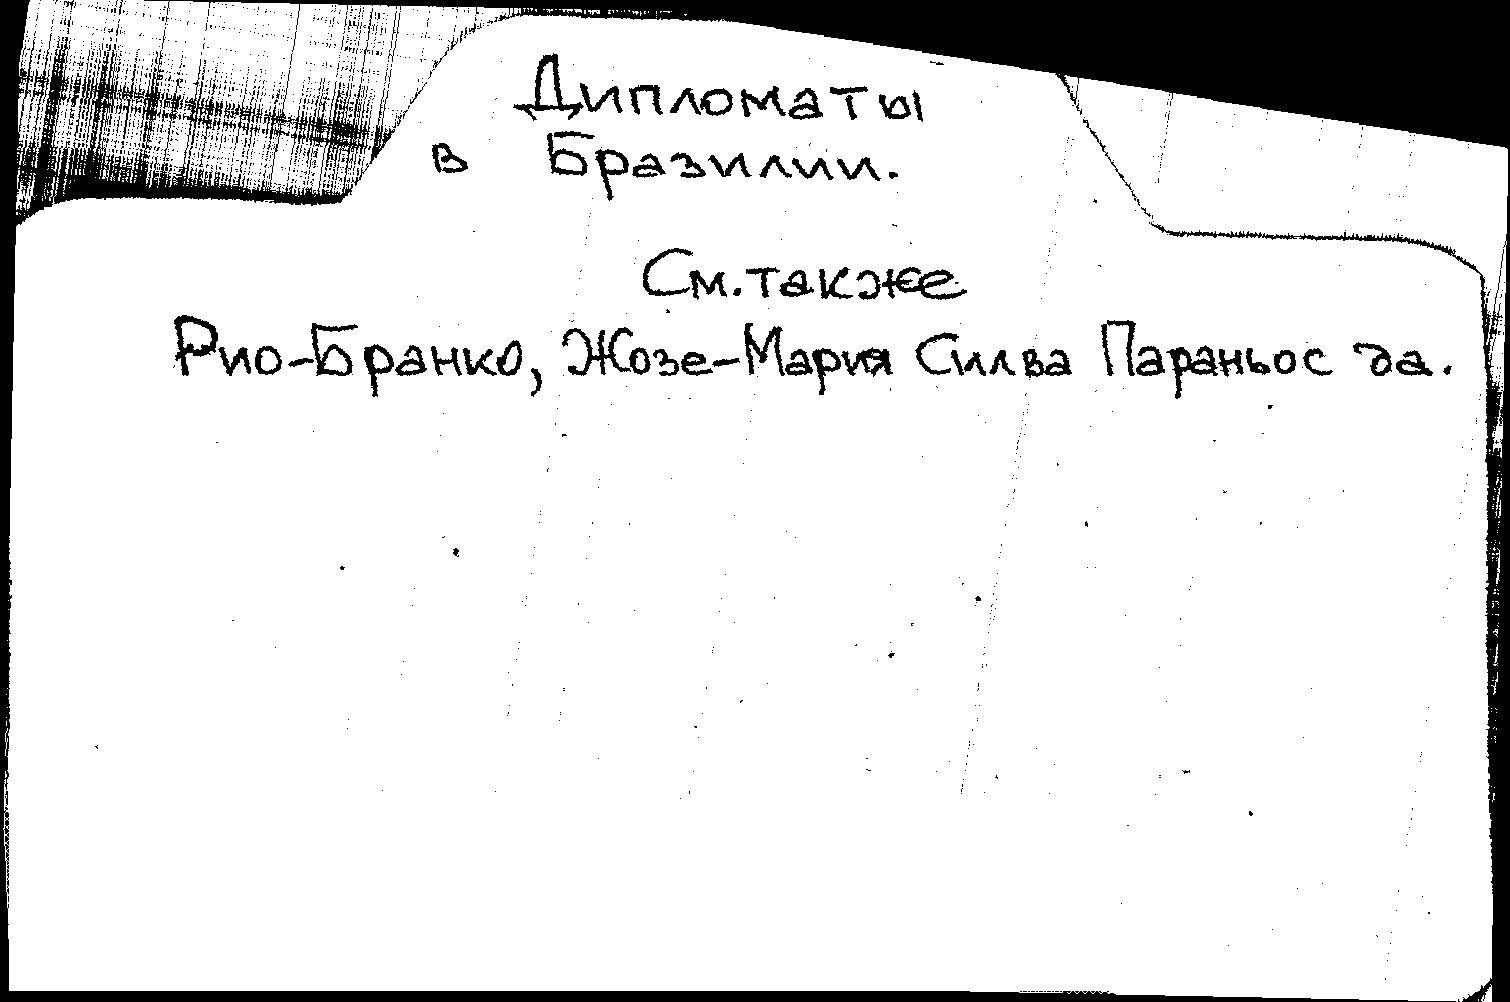 Дипломаты
в Бразилии.
См. также
Рио-Бранко, Жозе-Мария Силва Параньос да.